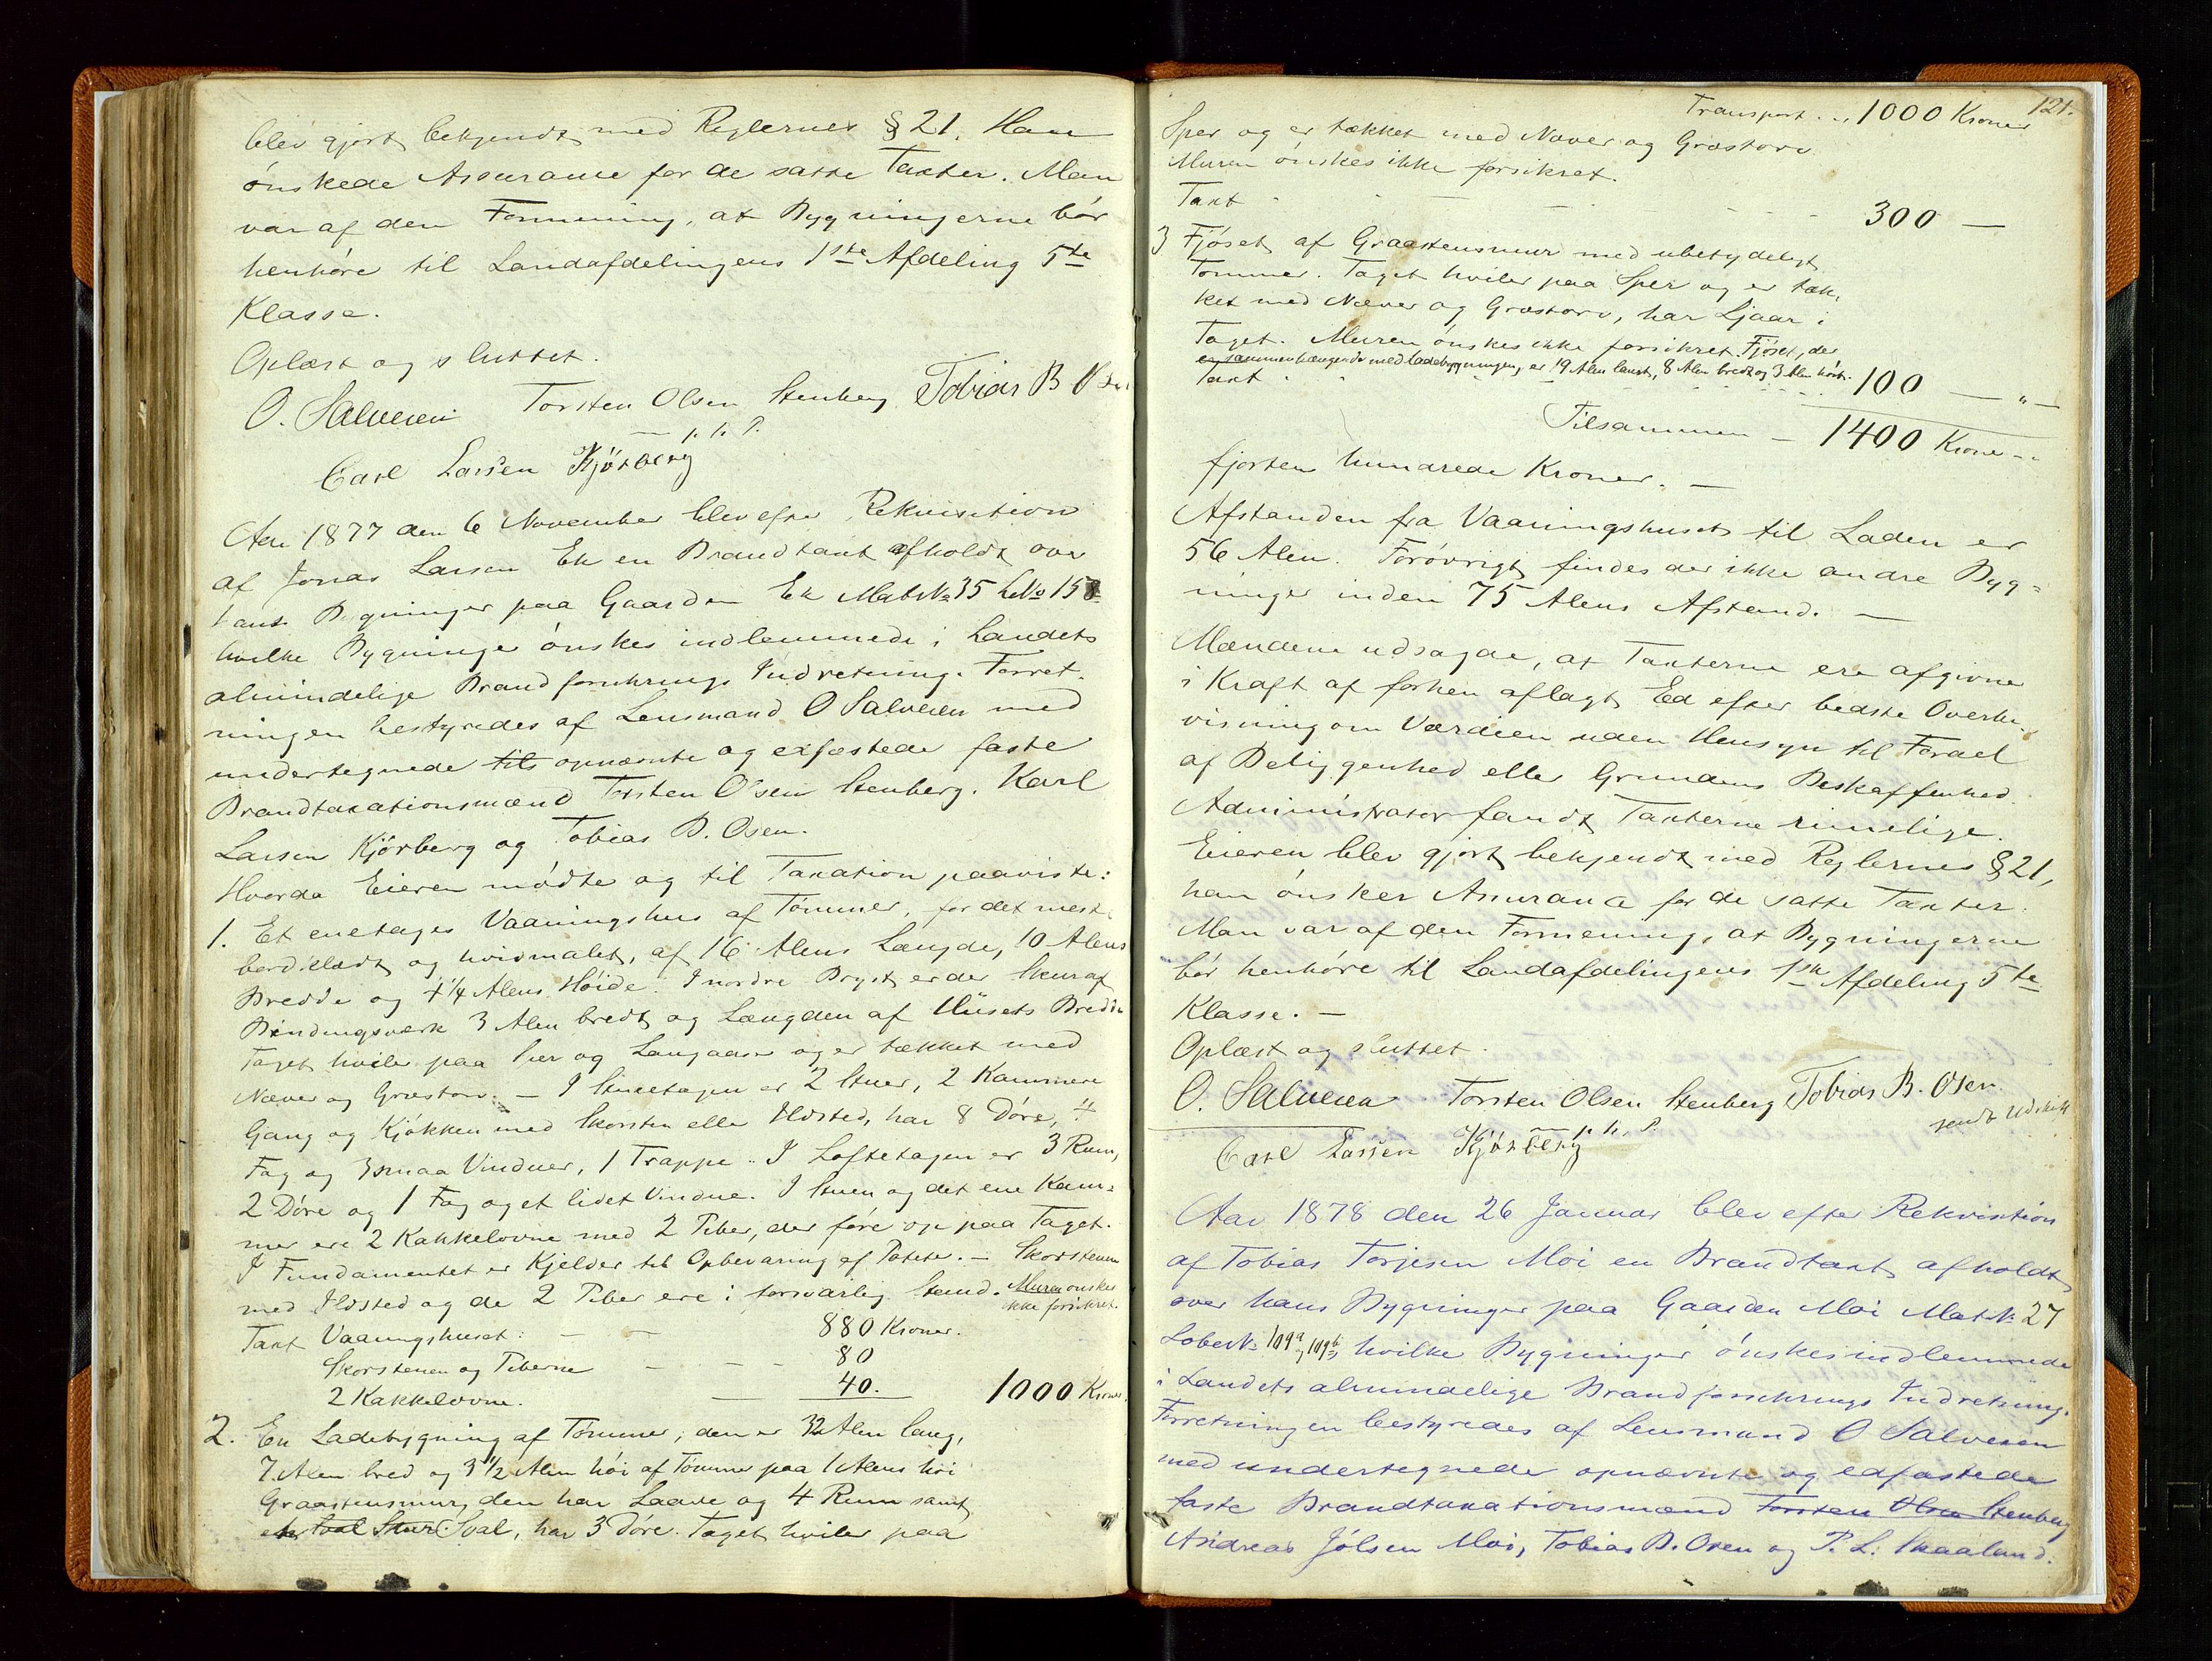 blev gjort bekjendt med Reglernes § 21. Han
ønskede Assurance for de satte Taxter. Man
var af den Formening, at Bygningerne bør
henhøre til Landafdelingens 1ste Afdeling 5te
Klasse.
Oplæst og sluttet.
O. Salvesen Torsten Olsen Stenberg Tobias B Osen
m. p. P.
Carl Larsen Kjørberg
Aar 1877 den 6 November blev efter Rekvisition
af Jonas Larsen Ek en Brandtaxt afholdt over
hans Bygninger paa Gaarden Ek Mats№ 35 L№ 158
hvilke Bygninger ønskes indlemmede i Landets
almindelige Brandforsikrings Indretning. Forret-
ningen bestyredes af Lensmand O Salvesen med
undertegnede tils opnævnte og edfæstede faste
Brandtaxationsmænd Torsten Olsen Stenberg. Karl
Larsen Kjørberg og Tobias B. Osen.
Hvorda Eieren mødte og til Taxation paaviste:
1. Et enetages Vaaningshus af Tømmer, for det meste
bordklædt og hvidmalet, af 16 Alens Længde, 10 Alens
Bredde og 4 1/4 Alens Høide. I nordre Bryst er der Skur af
Bindingsværk 3 Alen bredt og Længden af Husets Bredde
Taget hviler paa Sper og Langaaser og er tækket med
Næver og Græstorv. — I Stueetagen er 2 Stuer, 2 Kammere
Gang og Kjøkken med Skorsten eller Ildsted, har 8 Døre, 4
Fag og 3 smaa Vinduer, 1 Trappe. I Loftetagen er 3 Rum,
2 Døre og 1 Fag og et lidet Vindue. I Stuen og det ene Kam-
mer ere 2 Kakkelovne med 2 Piber, der føre op paa Taget.
I Fundamentet er Kjelder til Opbevaring af Poteter. — Skorstenen
med Ildsted og de 2 Piber ere i forsvarlig Stand. Muren ønskes
ikke forsikret.
Taxt Vaaningshuset: — — 880 Kroner.
Skorstenen og Piberne — — — 80
2 Kakkelovne. — 40. 1000 Kroner.
2. En Ladebygning af Tømmer, den er 32 Alen lang,
7 Alen bred og 3 1/2 Alen høi af Tømmer paa 1 Alens høi
Graastensmur, den har Laave og 4 Rum samt
et Sval Skur. Sval, har 3 Døre. Taget hviler paa
121.
Transport . . 1000 Kroner
Sper og er tækket med Næver og Græstorv.
Muren ønskes ikke forsikret.
Taxt - - - - - - 300 —
3 Fjøset af Graastensmur med ubetydeligt
Tømmer. Taget hviler paa Sper og er tæk-
ket med Næver og Græstorv, har Ljaar i
Taget. Muren ønskes ikke forsikret. Fjøset, der
er sammenhængende med Ladebygningen, er 19 Alen langt, 8 Alen bredt og 3 Alen høit.
Taxt - - - - - - 100 — " —
Tilsammen — 1400 Kroner
fjorten hundrede Kroner. —
Afstanden fra Vaaningshuset til Laden er
56 Alen. Forøvrigt findes der ikke andre Byg-
ninger inden 75 Alens Afstand. —
Mændene udsagde, at Taxterne ere afgivne
i Kraft af forhen aflagt Ed efter bedste Overbe-
visning om Værdien uden Hensyn til Fordel
af Beliggenhed eller Grundens Beskaffenhed.
Administrator fandt Taxterne rimelige.
Eieren blev gjort bekjendt med Reglernes § 21,
han ønsker Assurance for de satte Taxter.
Man var af den Formening, at Bygningerne
bør henhøre til Landafdelingens 1ste Afdeling 5te
Klasse. —
Oplæst og sluttet.
O. Salvesen Torsten Olsen Stenberg Tobias B. Osen
m. p. P. sendt Udskrift
Carl Larsen Kjørberg
Aar 1878 den 26 Januar blev efter Rekvisition
af Tobias Torjesen Moi en Brandtaxt afholdt
over hans Bygninger paa Gaarden Moi Mats№ 27
Løbe№ 109a og 109b, hvilke Bygninger ønskes indlemmede
i Landets almindelige Brandforsikrings Indretning.
Forretningen bestyredes af Lensmand O Salvesen
med undertegnede opnævnte og edfæstede
faste Brandtaxationsmænd Torsten Olsen Stenberg
Andreas Jølsen Moi, Tobias B. Osen og P. L. Skaaland.